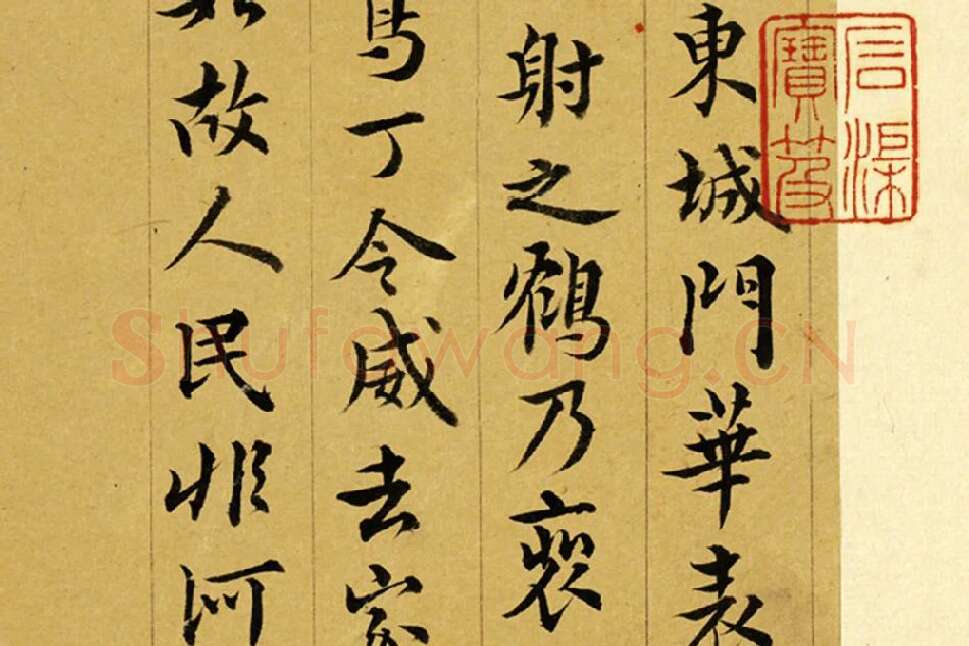 石渠
寶笈
東城門華表
射之鶴乃裵
鳥丁令威去家
如故人民非何
Shufawang.CN